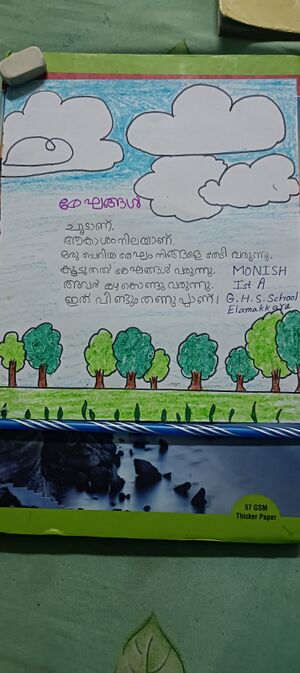 മേഘങ്ങൾ
ചൂടാണ്.
ആകാശം നിലയാണ്.
ഒരു ചെറിയ മേഘം നിങ്ങളെ തേടി വരുന്നു.
കൂടുതൽ മേഘങ്ങൾ വരുന്നു.
അവർ മഴ കൊണ്ടു വരുന്നു.
ഇത് വീണ്ടും തണുപ്പാണ്.
MONISH
Ist A
G.H.S.School
Elamakkara
57 GSM
Thicker Paper